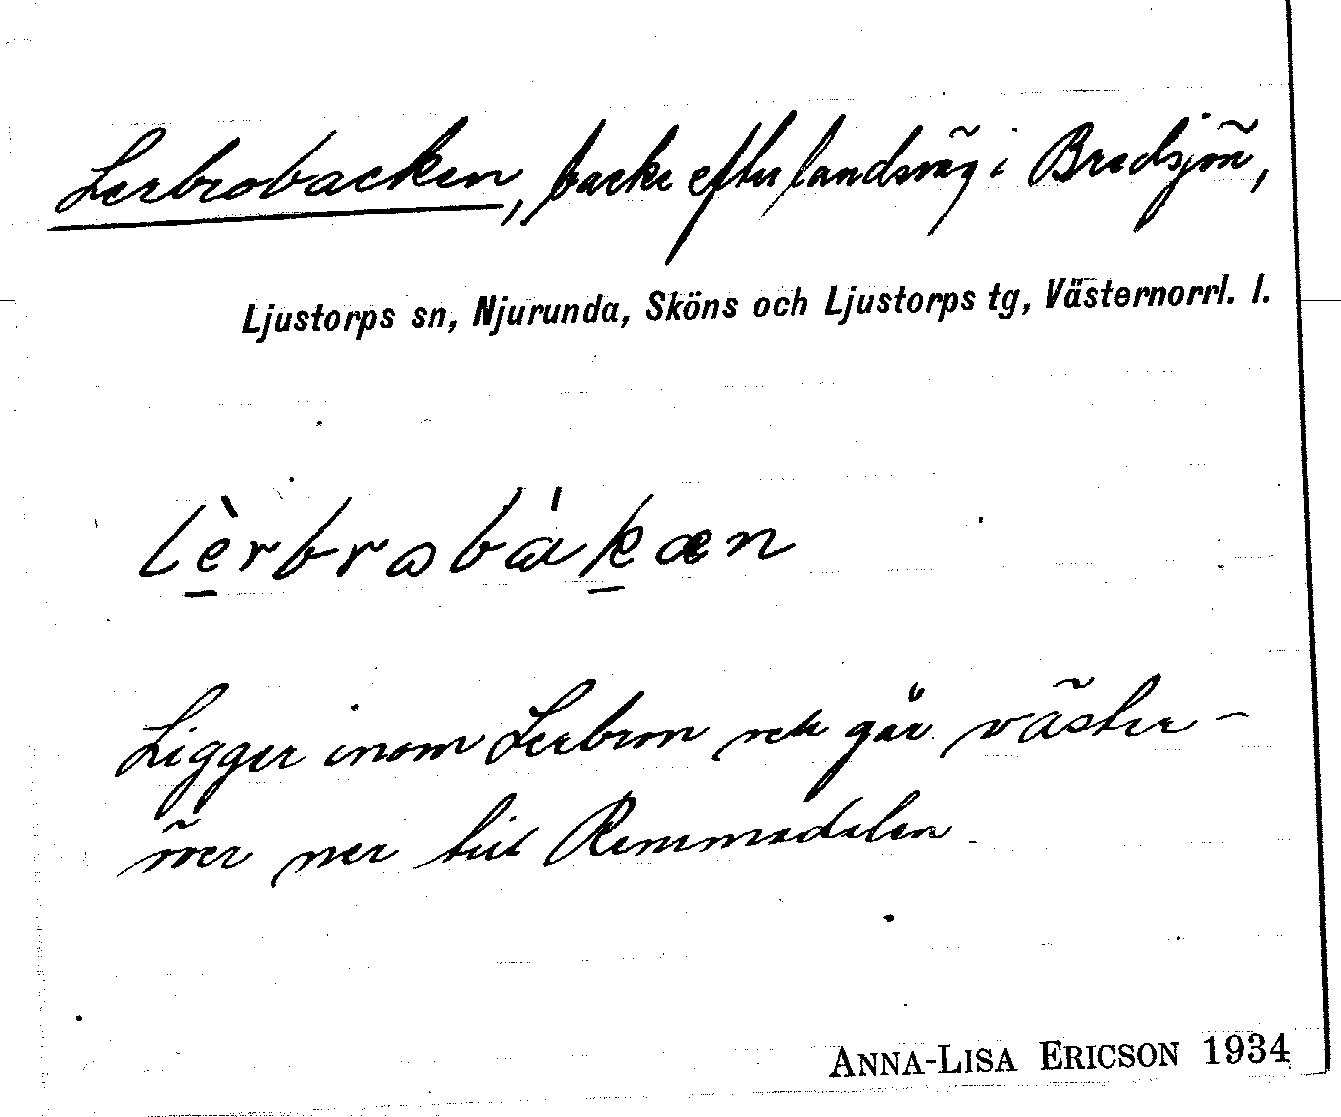 Lerbrobacken, backe efter landsväg i Bredsjön,
Ljustorps sn, Njurunda, Sköns och Ljustorps tg, Västernorrl. l.
lèrbrobàkæn
Ligger inom Lerbron och går väster-
över ner till Remmadalen
ANNA-LISA ERICSON 1934